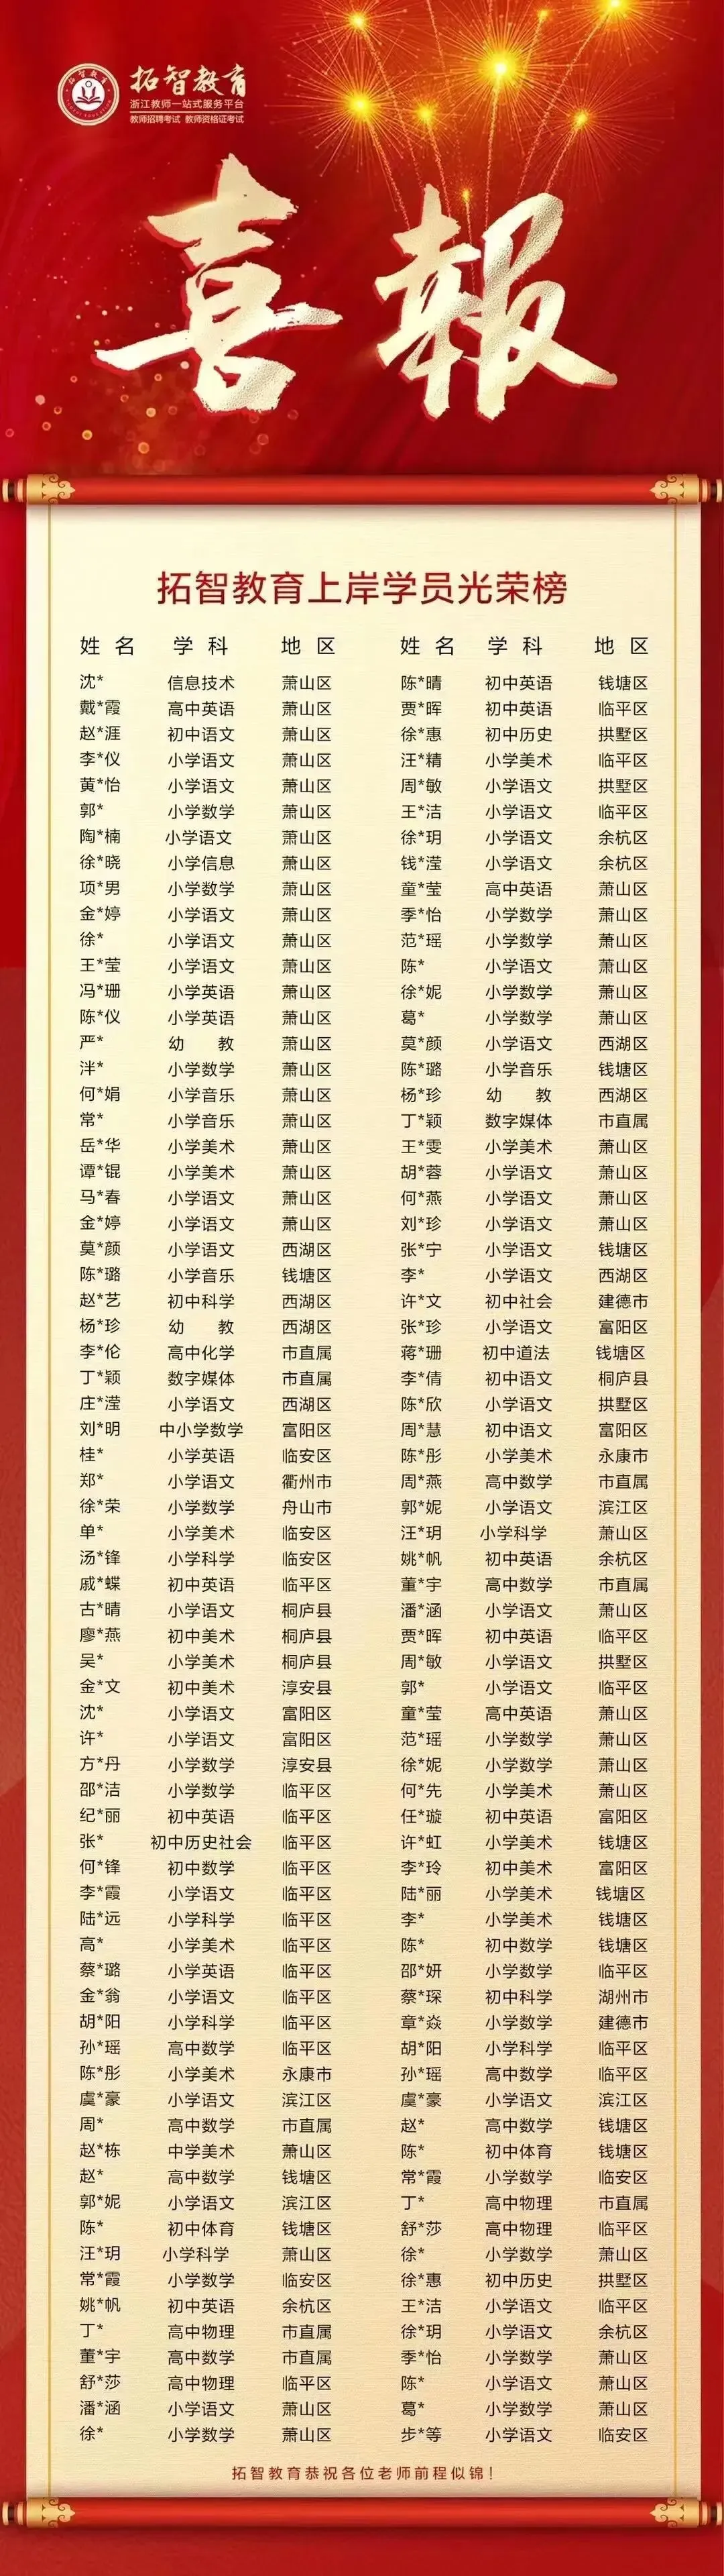 拓智教育
浙江教师一站式服务平台
教师招聘考试 教师资格证考试
喜報
拓智教育上岸学员光荣榜
姓名 学科 地区 姓名 学科 地区
沈* 信息技术 萧山区 陈*晴 初中英语 钱塘区
戴*霞 高中英语 萧山区 贾*晖 初中英语 临平区
赵*涯 初中语文 萧山区 徐*惠 初中历史 拱墅区
李*仪 小学语文 萧山区 汪*精 小学美术 临平区
黄*怡 小学语文 萧山区 周*敏 小学语文 拱墅区
郭* 小学数学 萧山区 王*洁 小学语文 临平区
陶*楠 小学语文 萧山区 徐*玥 小学语文 余杭区
徐*晓 小学信息 萧山区 钱*滢 小学语文 余杭区
项*男 小学数学 萧山区 童*莹 高中英语 萧山区
金*婷 小学语文 萧山区 季*怡 小学数学 萧山区
徐* 小学语文 萧山区 范*瑶 小学数学 萧山区
王*莹 小学语文 萧山区 陈* 小学语文 萧山区
冯*珊 小学英语 萧山区 徐*妮 小学数学 萧山区
陈*仪 小学英语 萧山区 葛* 小学数学 萧山区
严* 幼 教 萧山区 莫*颜 小学语文 西湖区
泮* 小学数学 萧山区 陈*璐 小学音乐 钱塘区
何*娟 小学音乐 萧山区 杨*珍 幼 教 西湖区
常* 小学音乐 萧山区 丁*颖 数字媒体 市直属
岳*华 小学美术 萧山区 王*雯 小学美术 萧山区
谭*锟 小学美术 萧山区 胡*蓉 小学语文 萧山区
马*春 小学语文 萧山区 何*燕 小学语文 萧山区
金*婷 小学语文 萧山区 刘*珍 小学语文 萧山区
莫*颜 小学语文 西湖区 张*宁 小学语文 钱塘区
陈*璐 小学音乐 钱塘区 李* 小学语文 西湖区
赵*艺 初中科学 西湖区 许*文 初中社会 建德市
杨*珍 幼 教 西湖区 张*珍 小学语文 富阳区
李*伦 高中化学 市直属 蒋*珊 初中道法 钱塘区
丁*颖 数字媒体 市直属 李*倩 初中语文 桐庐县
庄*滢 小学语文 西湖区 陈*欣 小学语文 拱墅区
刘*明 中小学数学 富阳区 周*慧 初中语文 富阳区
桂* 小学英语 临安区 陈*彤 小学美术 永康市
郑* 小学语文 衢州市 周*燕 高中数学 市直属
徐*荣 小学数学 舟山市 郭*妮 小学语文 滨江区
单* 小学美术 临安区 汪*玥 小学科学 萧山区
汤*锋 小学科学 临安区 姚*帆 初中英语 余杭区
戚*蝶 初中英语 临平区 董*宇 高中数学 市直属
古*晴 小学语文 桐庐县 潘*涵 小学语文 萧山区
廖*燕 初中美术 桐庐县 贾*晖 初中英语 临平区
吴* 小学美术 桐庐县 周*敏 小学语文 拱墅区
金*文 初中美术 淳安县 郭* 小学语文 临平区
沈* 小学语文 富阳区 童*莹 高中英语 萧山区
许* 小学语文 富阳区 范*瑶 小学数学 萧山区
方*丹 小学数学 淳安县 徐*妮 小学数学 萧山区
邵*洁 小学数学 临平区 何*先 小学美术 萧山区
纪*丽 初中英语 临平区 任*璇 初中英语 富阳区
张* 初中历史社会 临平区 许*虹 小学美术 钱塘区
何*锋 初中数学 临平区 李*玲 初中美术 富阳区
李*霞 小学语文 临平区 陆*丽 小学美术 钱塘区
陆*远 小学科学 临平区 李* 小学美术 钱塘区
高* 小学美术 临平区 陈* 初中数学 钱塘区
蔡*璐 小学英语 临平区 邵*妍 小学数学 临平区
金*翁 小学语文 临平区 蔡*琛 初中科学 湖州市
胡*阳 小学科学 临平区 章*焱 小学数学 建德市
孙*瑶 高中数学 临平区 胡*阳 小学科学 临平区
陈*彤 小学美术 永康市 孙*瑶 高中数学 临平区
虞*豪 小学语文 滨江区 虞*豪 小学语文 滨江区
周* 高中数学 市直属 赵* 高中数学 钱塘区
赵*栋 中学美术 萧山区 陈* 初中体育 钱塘区
赵* 高中数学 钱塘区 常*霞 小学数学 临安区
郭*妮 小学语文 滨江区 丁* 高中物理 市直属
陈* 初中体育 钱塘区 舒*莎 高中物理 临平区
汪*玥 小学科学 萧山区 徐* 小学数学 萧山区
常*霞 小学数学 临安区 徐*惠 初中历史 拱墅区
姚*帆 初中英语 余杭区 王*洁 小学语文 临平区
丁* 高中物理 市直属 徐*玥 小学语文 余杭区
董*宇 高中数学 市直属 季*怡 小学数学 萧山区
舒*莎 高中物理 临平区 陈* 小学语文 萧山区
潘*涵 小学语文 萧山区 葛* 小学数学 萧山区
徐* 小学数学 萧山区 步*等 小学语文 临安区
拓智教育恭祝各位老师前程似锦！